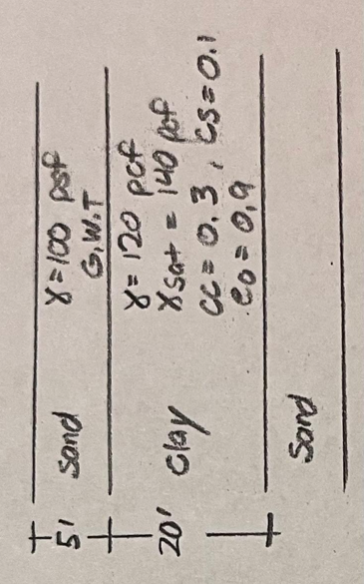 5' Sand γ=100 psf
G.W.T
20' Clay γ= 120 pcf
γsat = 140 pcf
cc= 0.3, cs= 0.1
e0= 0.9
Sand